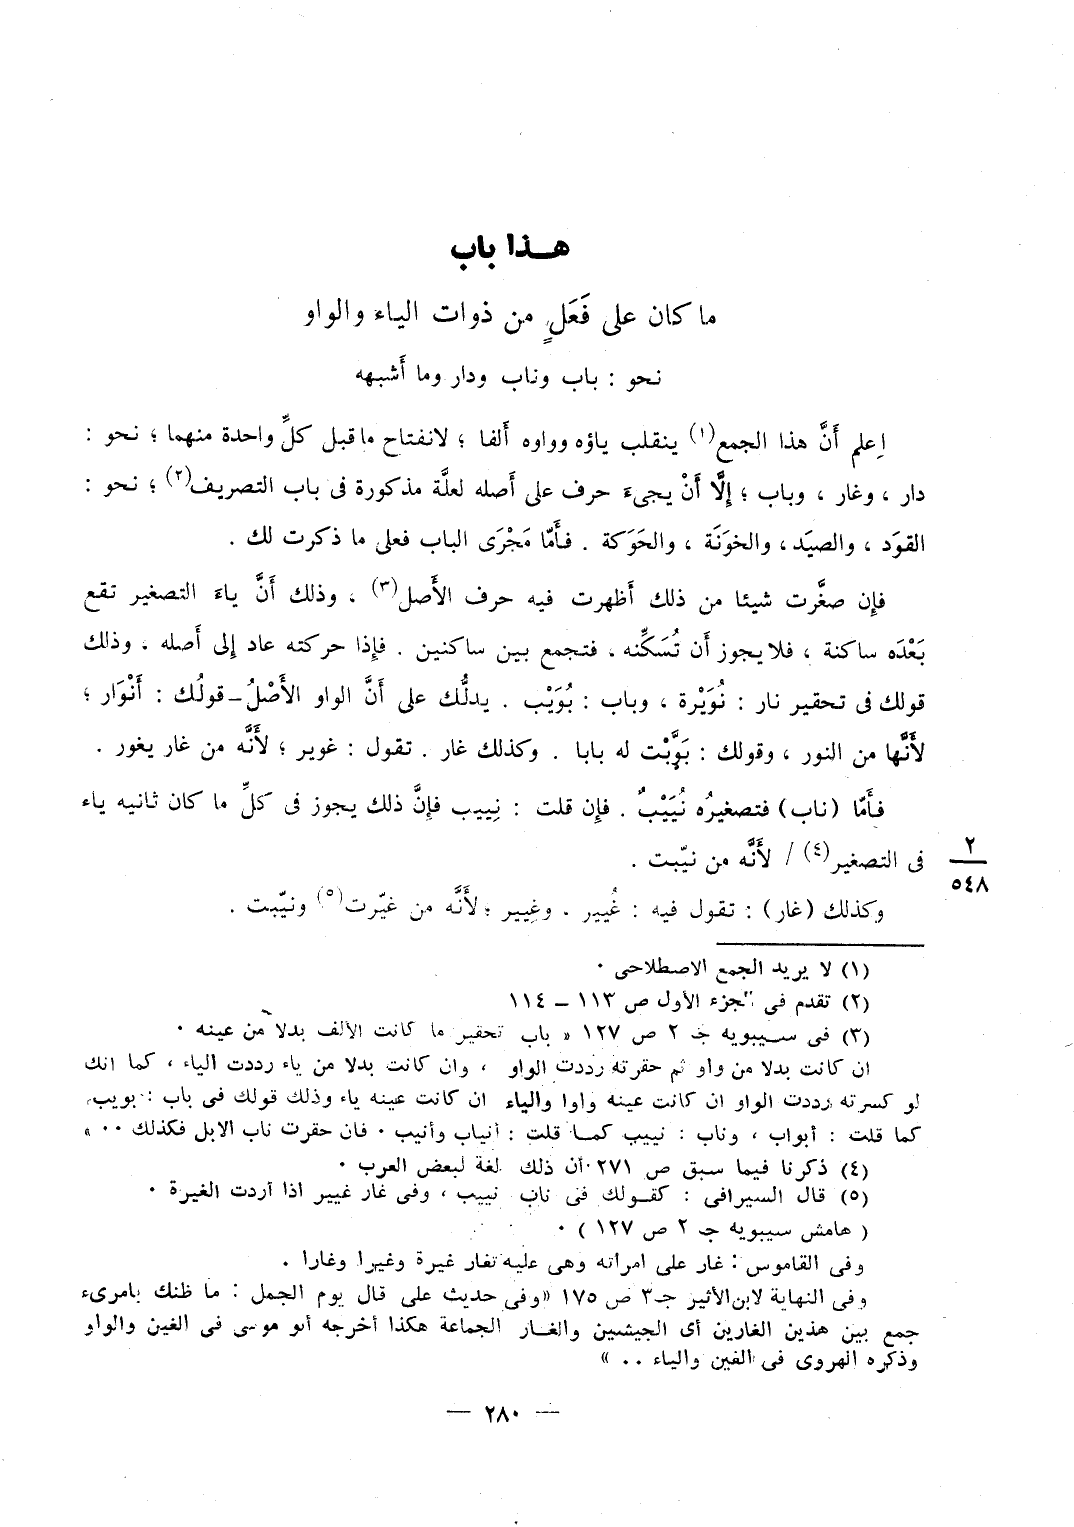 هـذا باب
ما كان على فَعَلٍ من ذوات الياء والواو
نحو : باب وناب ودار وما أَشبهه
اِعلم أَنَّ هذا الجمع(١) ينقلب ياؤه وواوه أَلفا ؛ لانفتاح ما قبل كلِّ واحدة منهما ؛ نحو :
دار ، وغار ، وباب ؛ إِلَّا أَنْ يجىءَ حرف على أَصله لعلَّة مذكورة فى باب التصريف(٢) ؛ نحو :
القوَد ، والصيَد ، والخوَنَة ، والحَوَكة . فأَمّا مَجْرَى الباب فعلى ما ذكرت لك .
فإِن صغَّرت شيئا من ذلك أَظهرت فيه حرف الأَصل(٣) ، وذلك أَنَّ ياءَ التصغير تقع
بَعْدَه ساكنة ، فلا يجوز أَن تُسَكِّنه ، فتجمع بين ساكنين . فإِذا حركته عاد إِلى أَصله ، وذلك
قولك فى تحقير نار : نُوَيْرة ، وباب : بُوَيْب . يدلُّك على أَنَّ الواو الأَصْلُ ــ قولُك : أَنْوَار ؛
لأَنَّها من النور ، وقولك : بَوَّبْت له بابا . وكذلك غار . تقول : غوير ؛ لأَنَّه من غار يغور .
فأَمّا (ناب) فتصغيرُه نُيَيْبٌ . فإِن قلت : نِييب فإِنَّ ذلك يجوز فى كلِّ ما كان ثانيه ياء
فى التصغير(٤) / لأَنَّه من نيّبت .
٢
٥٤٨
وكذلك (غار) : تقول فيه : غُيير . وغِيير ؛ لأَنَّه من غيّرت(٥) ونيّبت .
(١) لا يريد الجمع الاصطلاحى ٠
(٢) تقدم فى الجزء الأول ص ١١٣ ــ ١١٤
(٣) فى سيبويه جـ ٢ ص ١٢٧ « باب تحقير ما كانت الألف بدلا من عينه ٠
ان كانت بدلا من واو ثم حقرته رددت الواو ، وان كانت بدلا من ياء رددت الياء ، كما انك
لو كسرته رددت الواو ان كانت عينه واوا والياء ان كانت عينه ياء وذلك قولك فى باب : بويب
كما قلت : أبواب ، وناب : نييب كمـا قلت : أنياب وأنيب ٠ فان حقرت ناب الابل فكذلك ٠٠ »
(٤) ذكرنا فيما سبق ص ٢٧١ أن ذلك لغة لبعض العرب ٠
(٥) قال السيرافى : كقـولك فى ناب نييب ، وفى غار غيير اذا أردت الغيرة ٠
( هامش سيبويه جـ ٢ ص ١٢٧ ) ٠
وفى القاموس : غار على امراته وهى عليه تغار غيرة وغيرا وغارا .
وفى النهاية لابن الأثير جـ٣ ص ١٧٥ «وفى حديث على قال يوم الجمل : ما ظنك بامرىء
جمع بين هذين الغارين أى الجيشين والغـار الجماعة هكذا أخرجه أبو موسى فى الغين والواو
وذكره الهروى فى الغين والياء ٠٠ »
— ٢٨٠ —